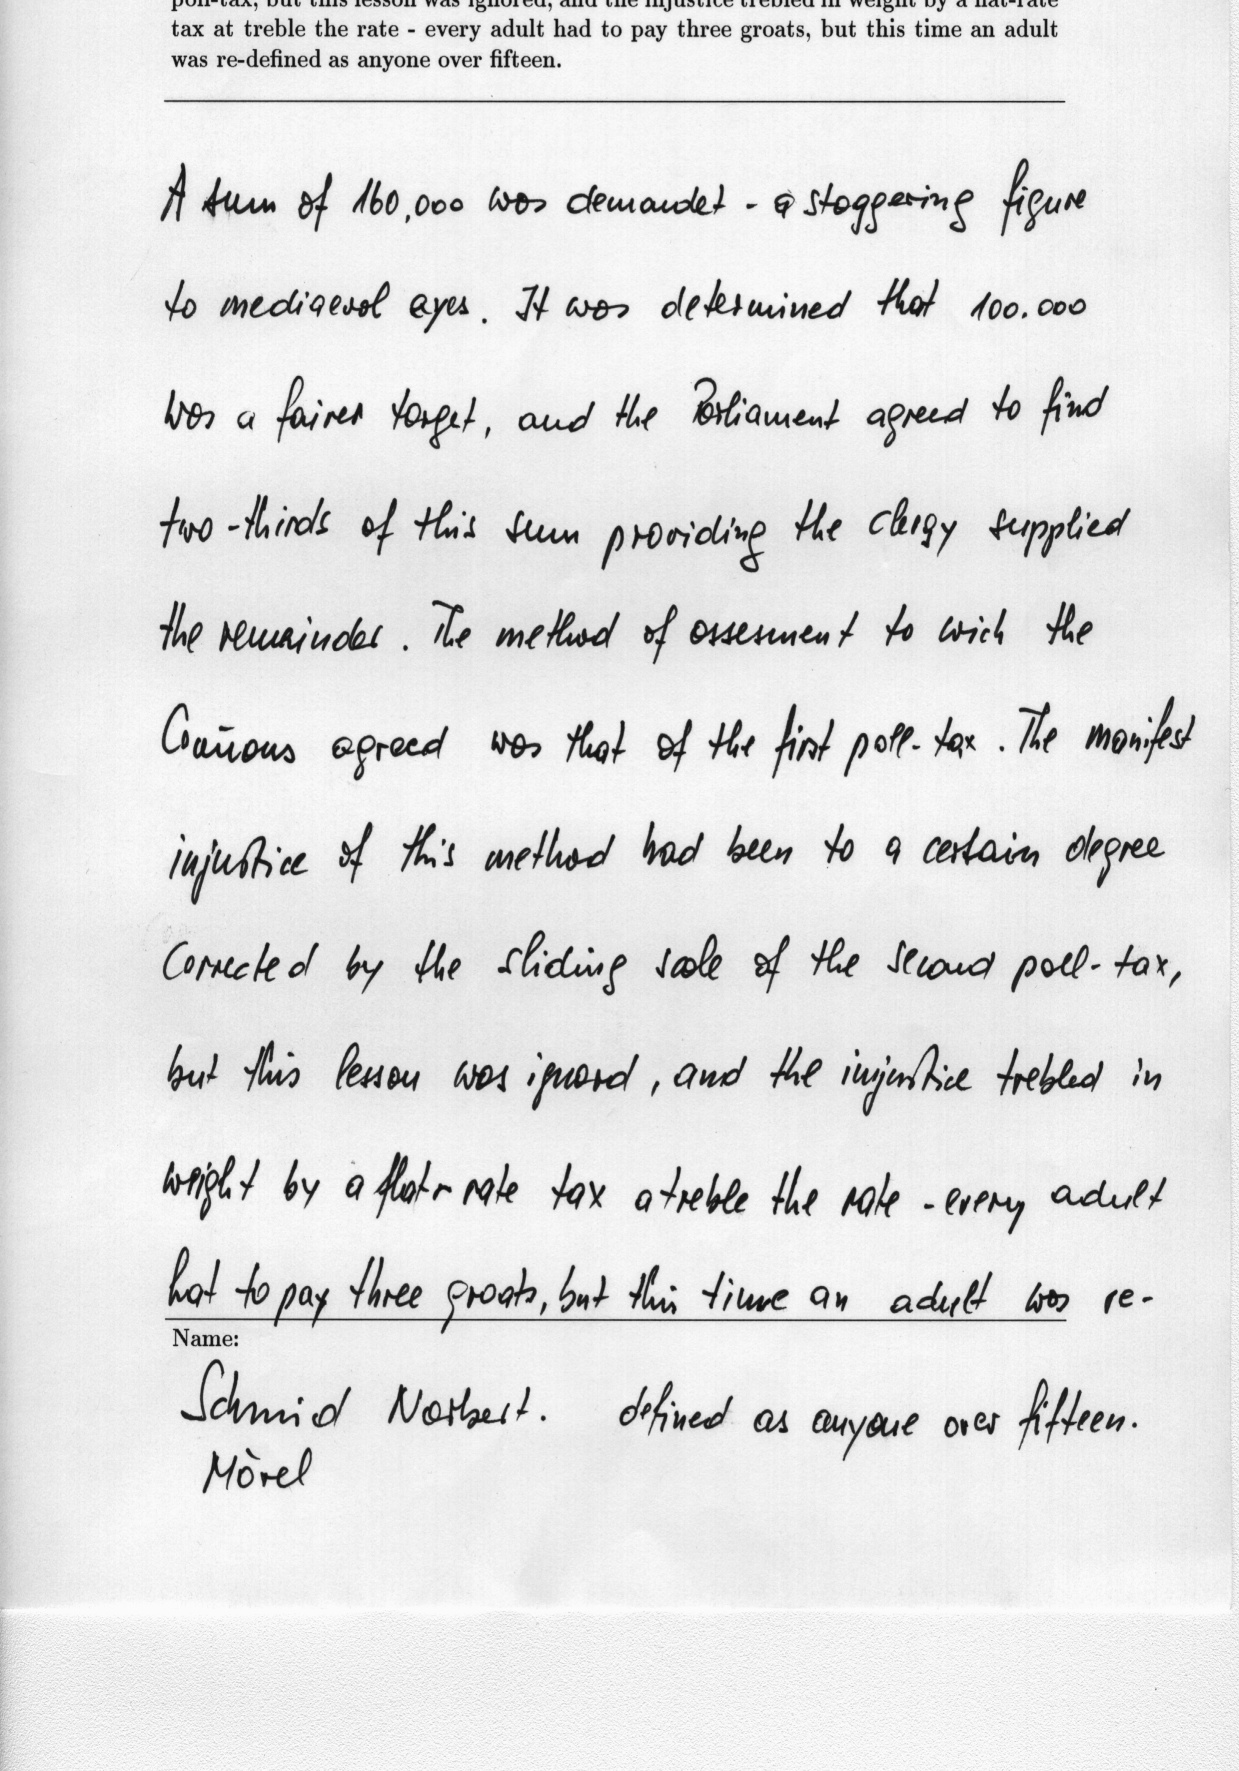 poll-tax, but this lesson was ignored, and the injustice trebled in weight by a flat-rate
tax at treble the rate - every adult had to pay three groats, but this time an adult
was re-defined as anyone over fifteen.
A sum of 160,000 was demandet - a staggering figure
to mediaeval eyes. It was determined that 100.000
was a fairer target, and the Parliament agreed to find
two-thirds of this sum providing the clergy supplied
the remainder. The method of assesment to wich the
Com̄ons agreed was that of the first poll-tax. The manifest
injustice of this method had been to a certain degree
corrected by the sliding scale of the second poll-tax,
but this lesson was ignord, and the injustice trebled in
weight by a flat-rate tax a treble the rate - every adult
hat to pay three groats, but this time an adult was re-
Name:
Schmid Norbert. defined as anyone over fifteen.
Mòrel